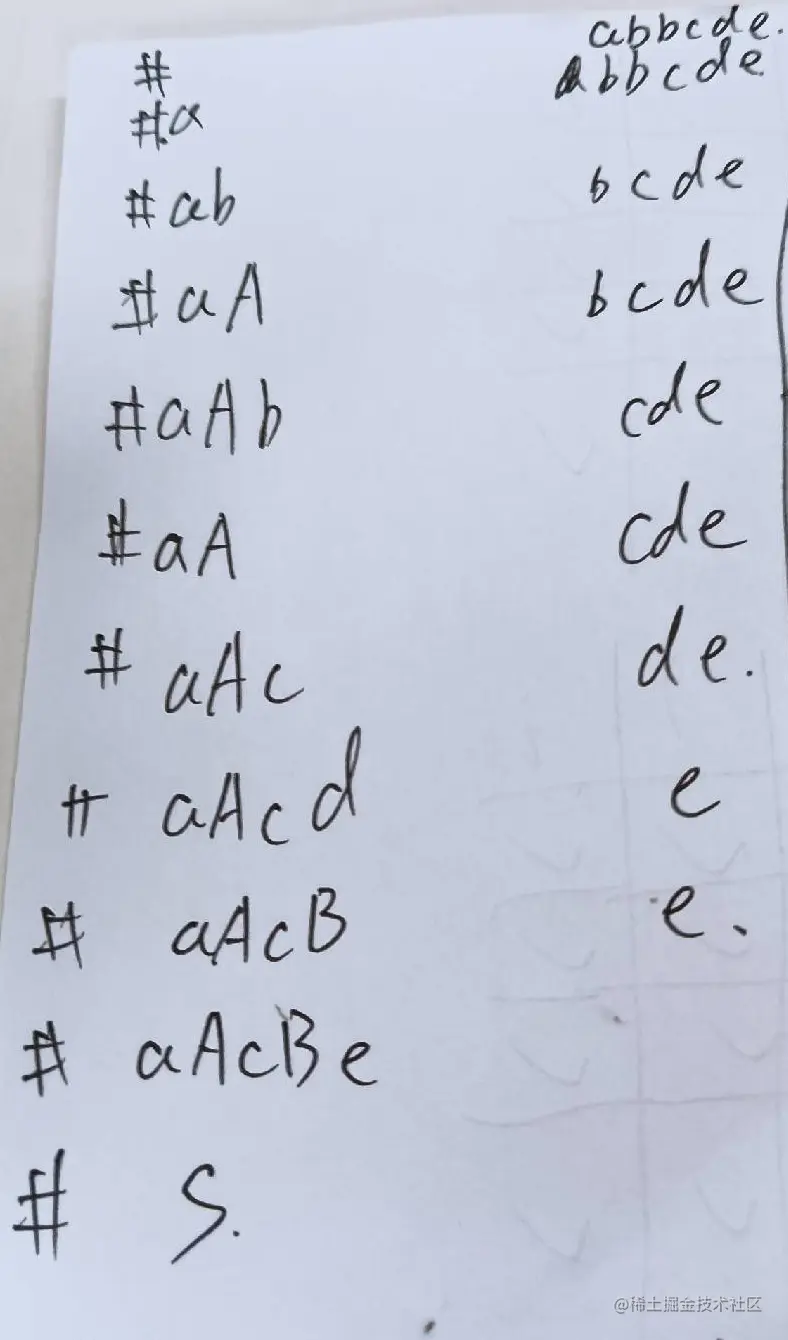 # abbcde.
#a abbcde
#ab bcde
#aA bcde
#aAb cde
#aA cde
# aAc de.
# aAcd e
# aAcB e.
# aAcBe
# S.
@稀土掘金技术社区